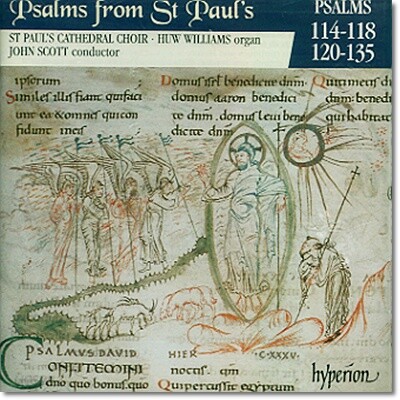 Psalms from St Paul's
PSALMS
114-118
120-135
ST PAUL'S CATHEDRAL CHOIR · HUW WILLIAMS organ
JOHN SCOTT conductor
ipsorum
Similes illis fiant qui faci
unt ea & omnes qui con
fidunt in eis
Domus isrl benedicite dnm
domus aaron benedici
te dnm domus levi bene
dicite dnm
Qui timetis dnm
benedicite dnm
qui habitat
PSALMUS DAVID
HIER
CXXXV
CONFITEMINI
dno quo bonus quo
Qui percussit egyptum
hyperion